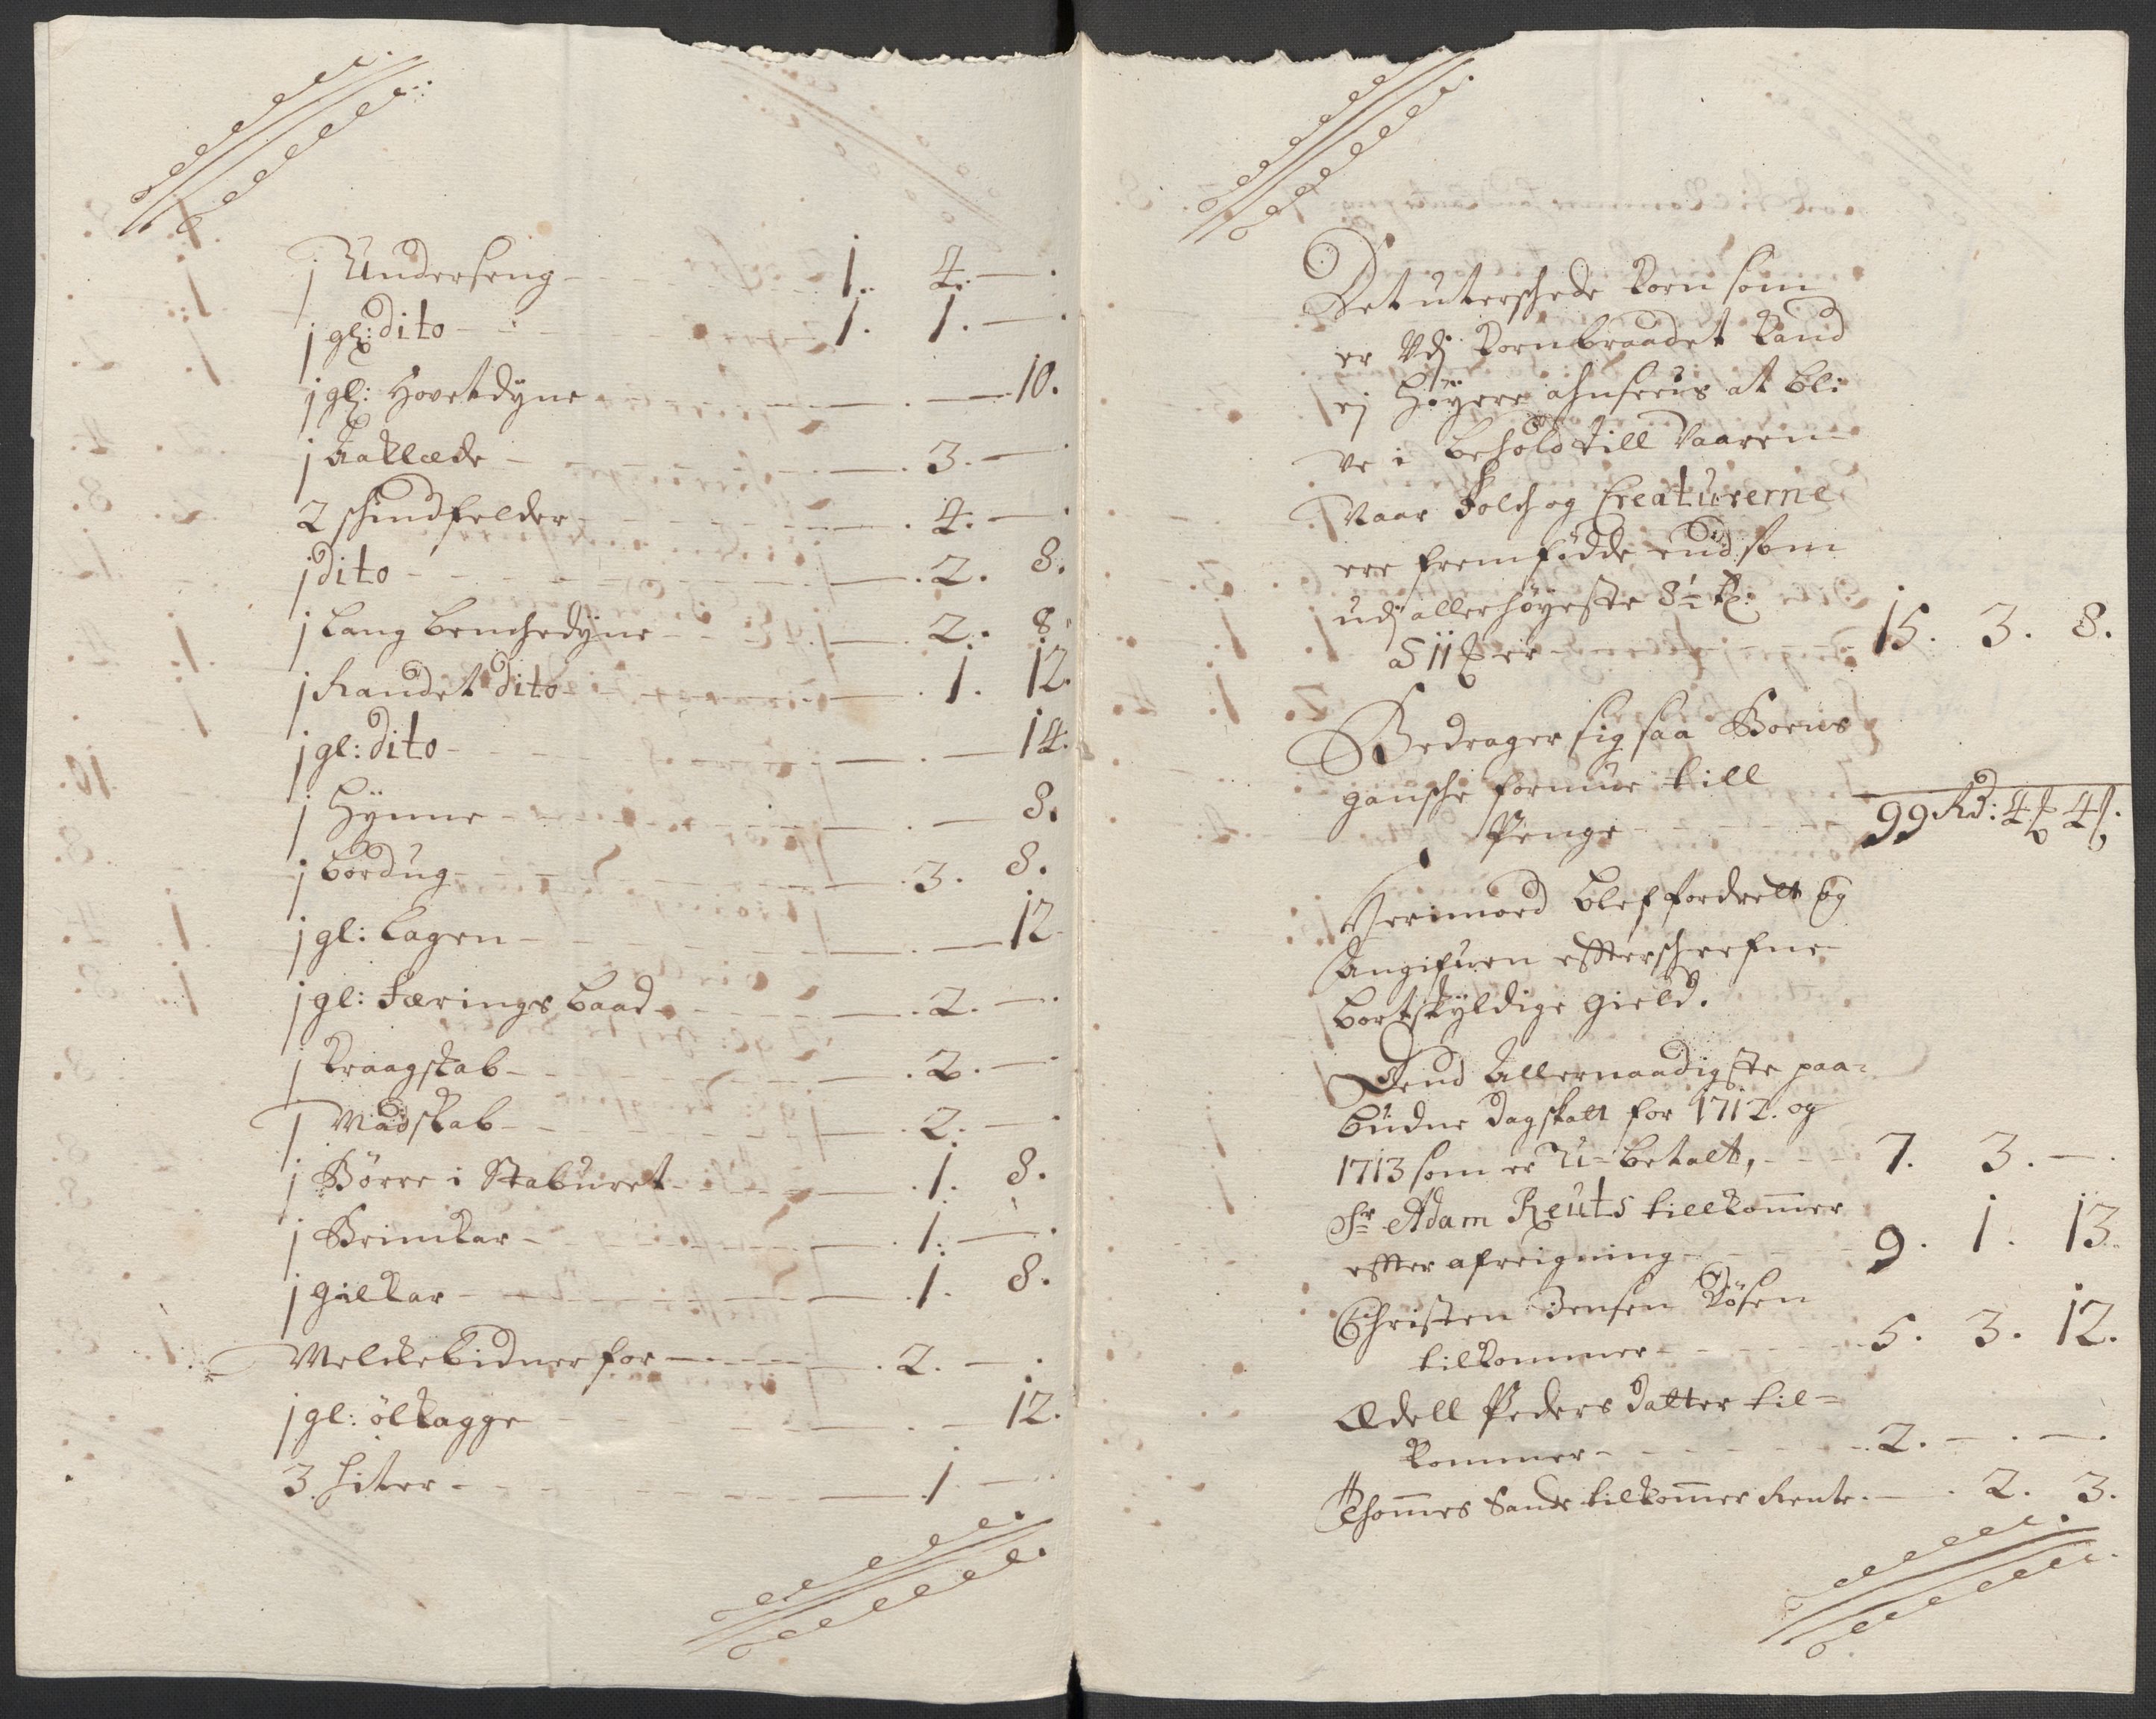 j Underseng - 1. 4. -
j gl: dito - 1. 1. -
j gl: Hovetdyne - 10.
j Aaklæde - 3. -
2 schindfelder - 4. -
j dito - 2. 8.
j Lang benchedyne - 2. 8.
j Randet dito - 1. 12.
j gl: dito - 14.
j Hynne - 8.
j bordug - 3. 8.
j gl: Lagen - 12.
j gl: Færings baad - 2. -
j kraagskab - 2. -
j Madskab - 2. -
j Börre i Staburet - 1. 8.
j Brimkar - 1. -
j gilkar - 1. 8.
Melckebidner for - 2. -
j gl: ölkagge - 12.
3. hiter - 1. -
Det uterschede Korn som
er Vdj Kornbraadet kand
ej Höyere ahnsees at bli
ve i behold till Vaaren
Naar Folch og Creaturerne
ere fremfödde end som
udj allerhöyeste 8½
a 11 er - 15. 3. 8.
Bedrager sig saa Boens
gansche formue till
Penge - 99 Rd: 4 4
Herimoed blef fordrelt og
Angifuen effterschrefne
bortskyldige gield.
Dend Allernaadigste paa-
budne dagskatt for 1712. og
1713 som er U-betalt, - 7. 3. -
Sr Adam Reuts tillkom̄er
effter afreigning - 9. 1. 13.
Christen Jensen Rösen
tilkommer - 5. 3. 12.
Ædell Peders datter til-
kommer - 2. - -
Thom̄es Sande tilkom̄er Rente - 2. 3.